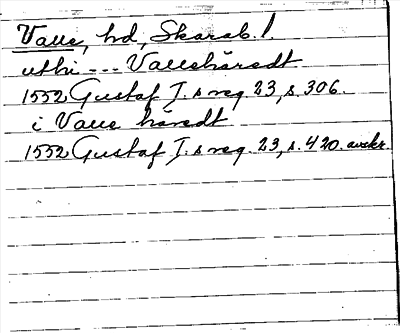 Valle, hd, Skarab. l
uthi --- Vallehäredt
1552 Gustaf I:s reg. 23, s. 306.
i Valle häredt
1552 Gustaf I:s reg. 23, s. 420. avskr.